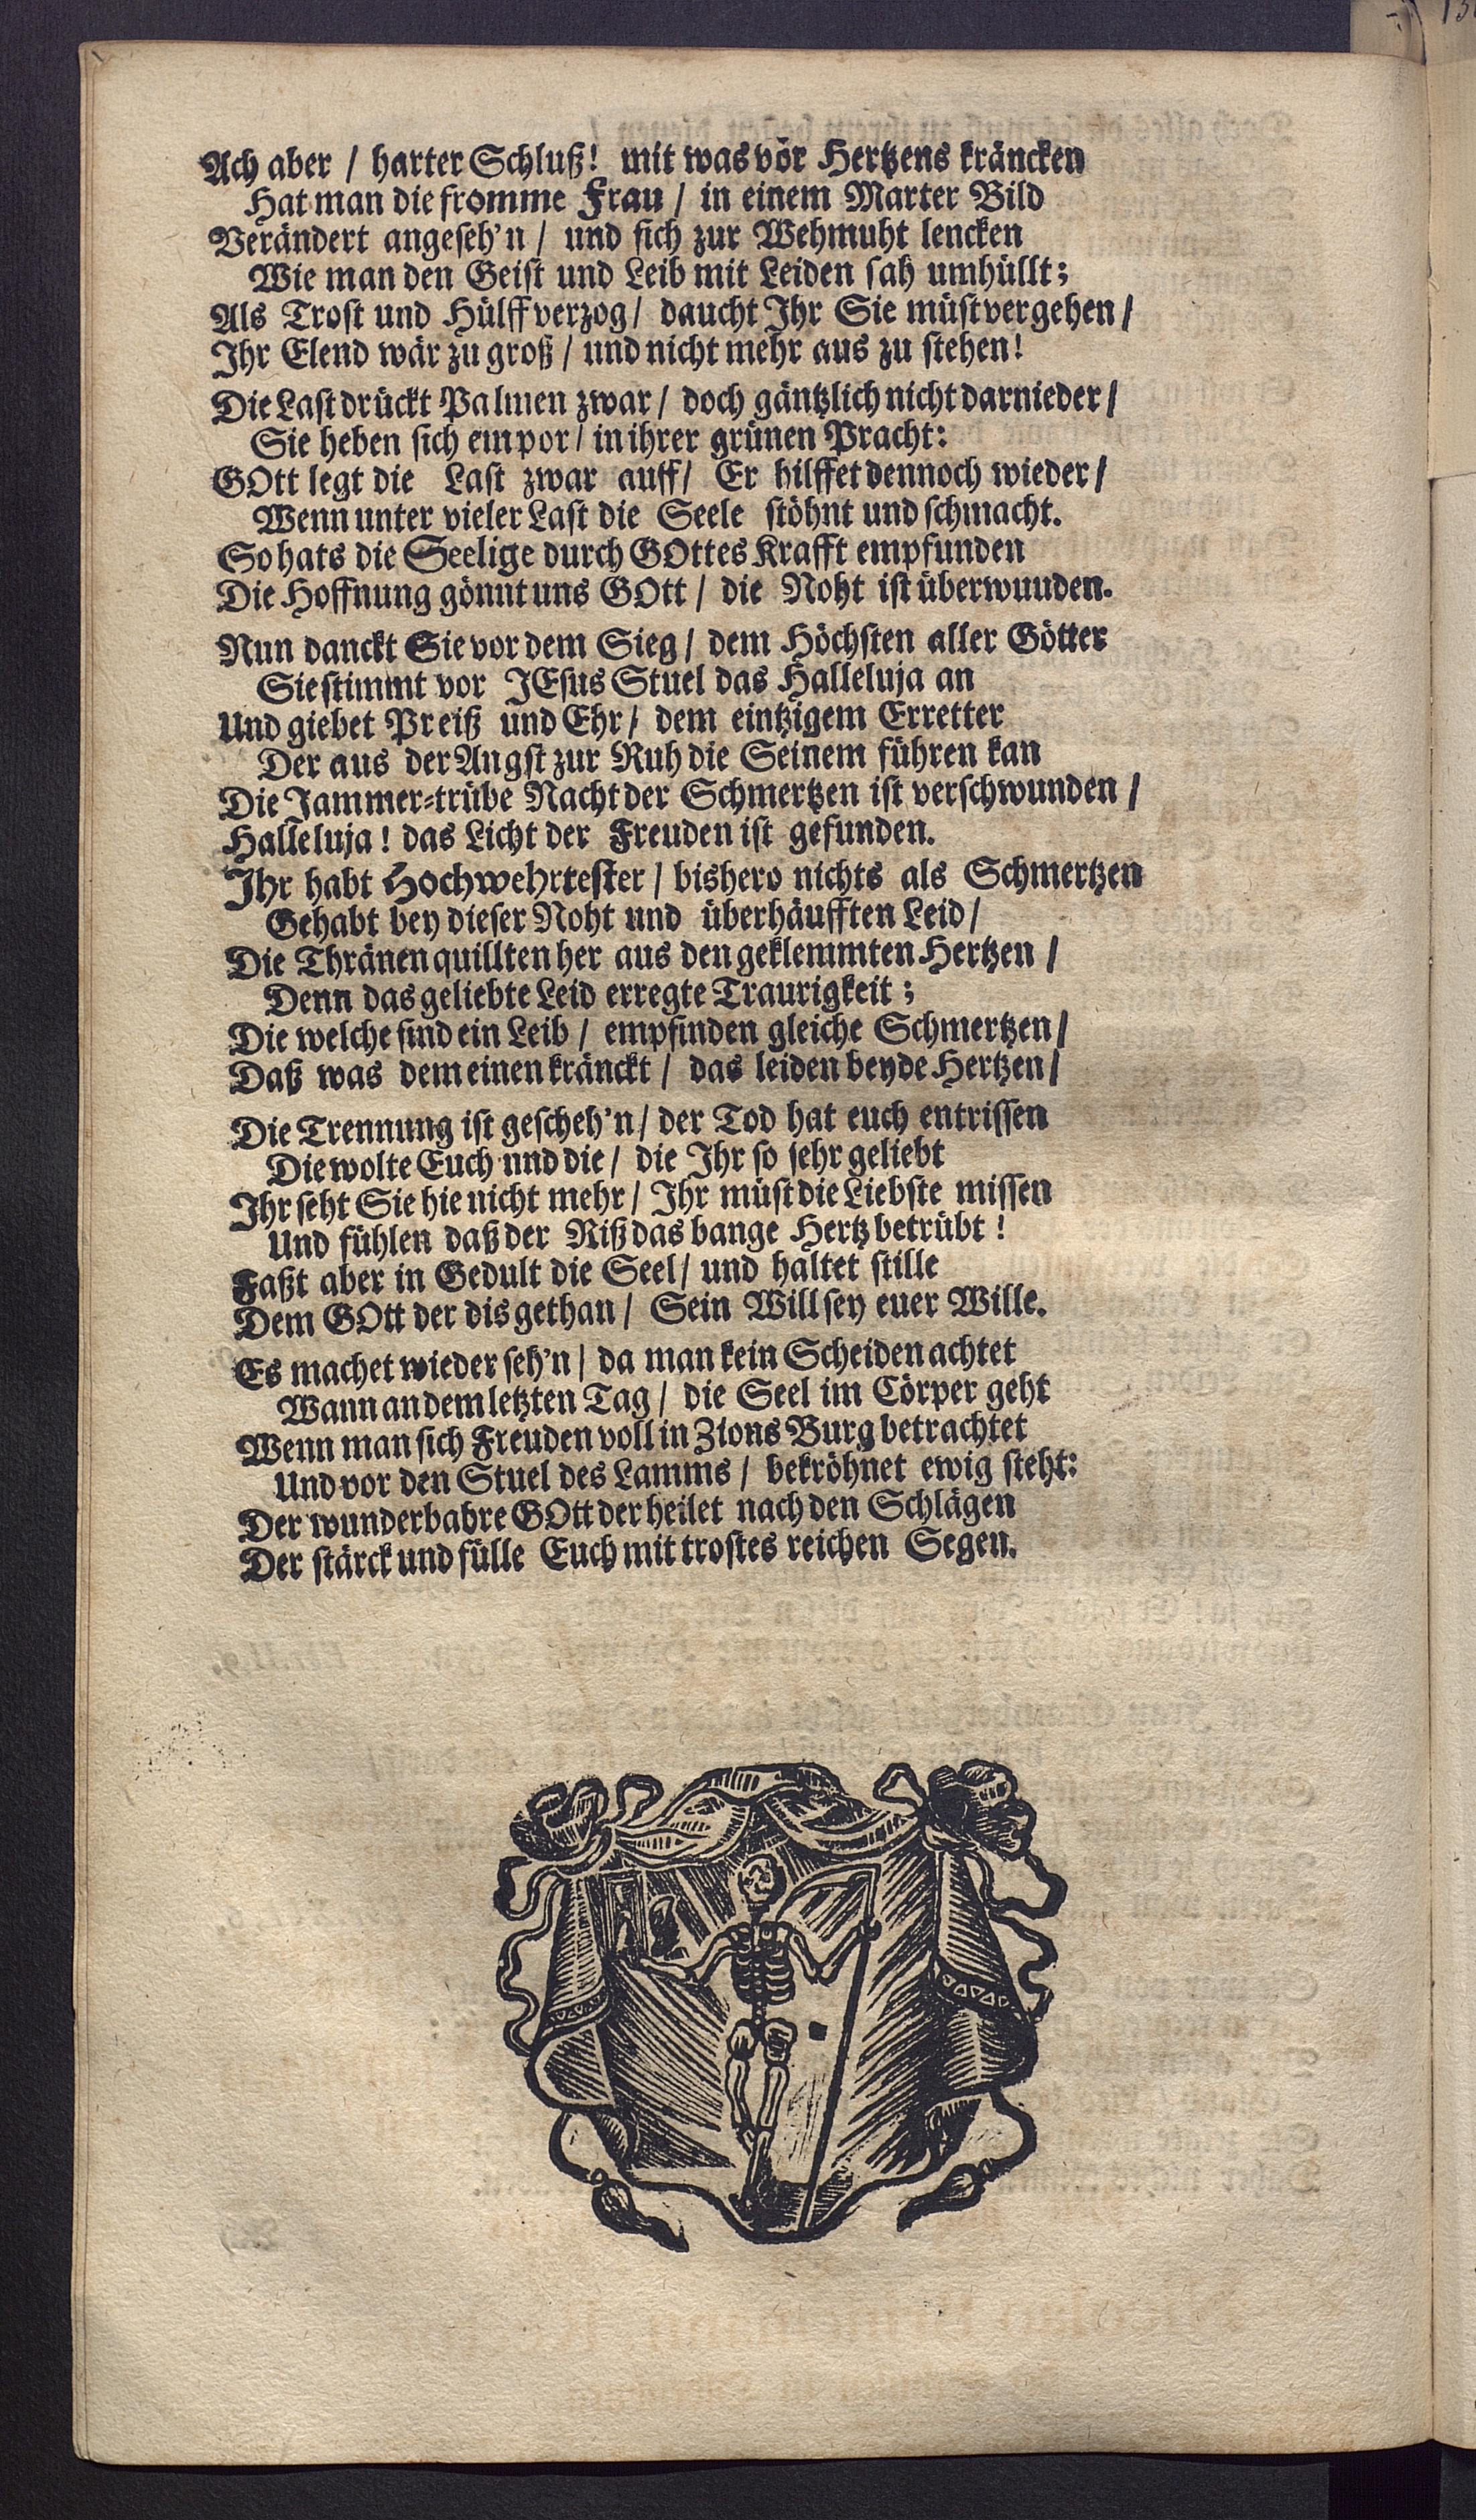 Ach aber / harter Schluß! mit was vör Hertzens kräncken
Hat man die fromme Frau / in einem Marter Bild
Verändert angeseh'n / und sich zur Wehmuht lencken
Wie man den Geist und Leib mit Leiden sah umhüllt;
Als Trost und Hülff verzog / daucht Ihr Sie müst vergehen /
Ihr Elend wär zu groß / und nicht mehr aus zu stehen!
Die Last drückt Palmen zwar / doch gäntzlich nicht darnieder /
Sie heben sich empor / in ihrer grünen Pracht:
GOtt legt die Last zwar auff / Er hilffet dennoch wieder /
Wenn unter vieler Last die Seele stöhnt und schmacht.
So hats die Seelige durch GOttes Krafft empfunden
Die Hoffnung gönnt uns GOtt / die Noht ist überwuuden.
Nun danckt Sie vor dem Sieg / dem Höchsten aller Götter
Sie stimmt vor JEsus Stuel das Halleluja an
Und giebet Preiß und Ehr / dem eintzigem Erretter
Der aus der Angst zur Ruh die Seinem führen kan
Die Jammer-trübe Nacht der Schmertzen ist verschwunden /
Halleluja! das Licht der Freuden ist gefunden.
Ihr habt Hochwehrtester / bishero nichts als Schmertzen
Gehabt bey dieser Noht und überhäufften Leid /
Die Thränen quillten her aus den geklemmten Hertzen /
Denn das geliebte Leid erregte Traurigkeit;
Die welche sind ein Leib / empfinden gleiche Schmertzen /
Daß was dem einen kränckt / das leiden beyde Hertzen /
Die Trennung ist gescheh'n / der Tod hat euch entrissen
Die wolte Euch und die / die Ihr so sehr geliebt
Ihr seht Sie hie nicht mehr / Ihr müst die Liebste missen
Und fühlen daß der Riß das bange Hertz betrübt!
Faßt aber in Gedult die Seel / und haltet stille
Dem GOtt der dis gethan / Sein Will sey euer Wille.
Es machet wieder seh'n / da man kein Scheiden achtet
Wann an dem letzten Tag / die Seel im Cörper geht
Wenn man sich Freuden voll in Zions Burg betrachtet
Und vor den Stuel des Lamms / bekröhnet ewig steht:
Der wunderbahre GOtt der heilet nach den Schlägen
Der stärck und fülle Euch mit trostes reichen Segen.